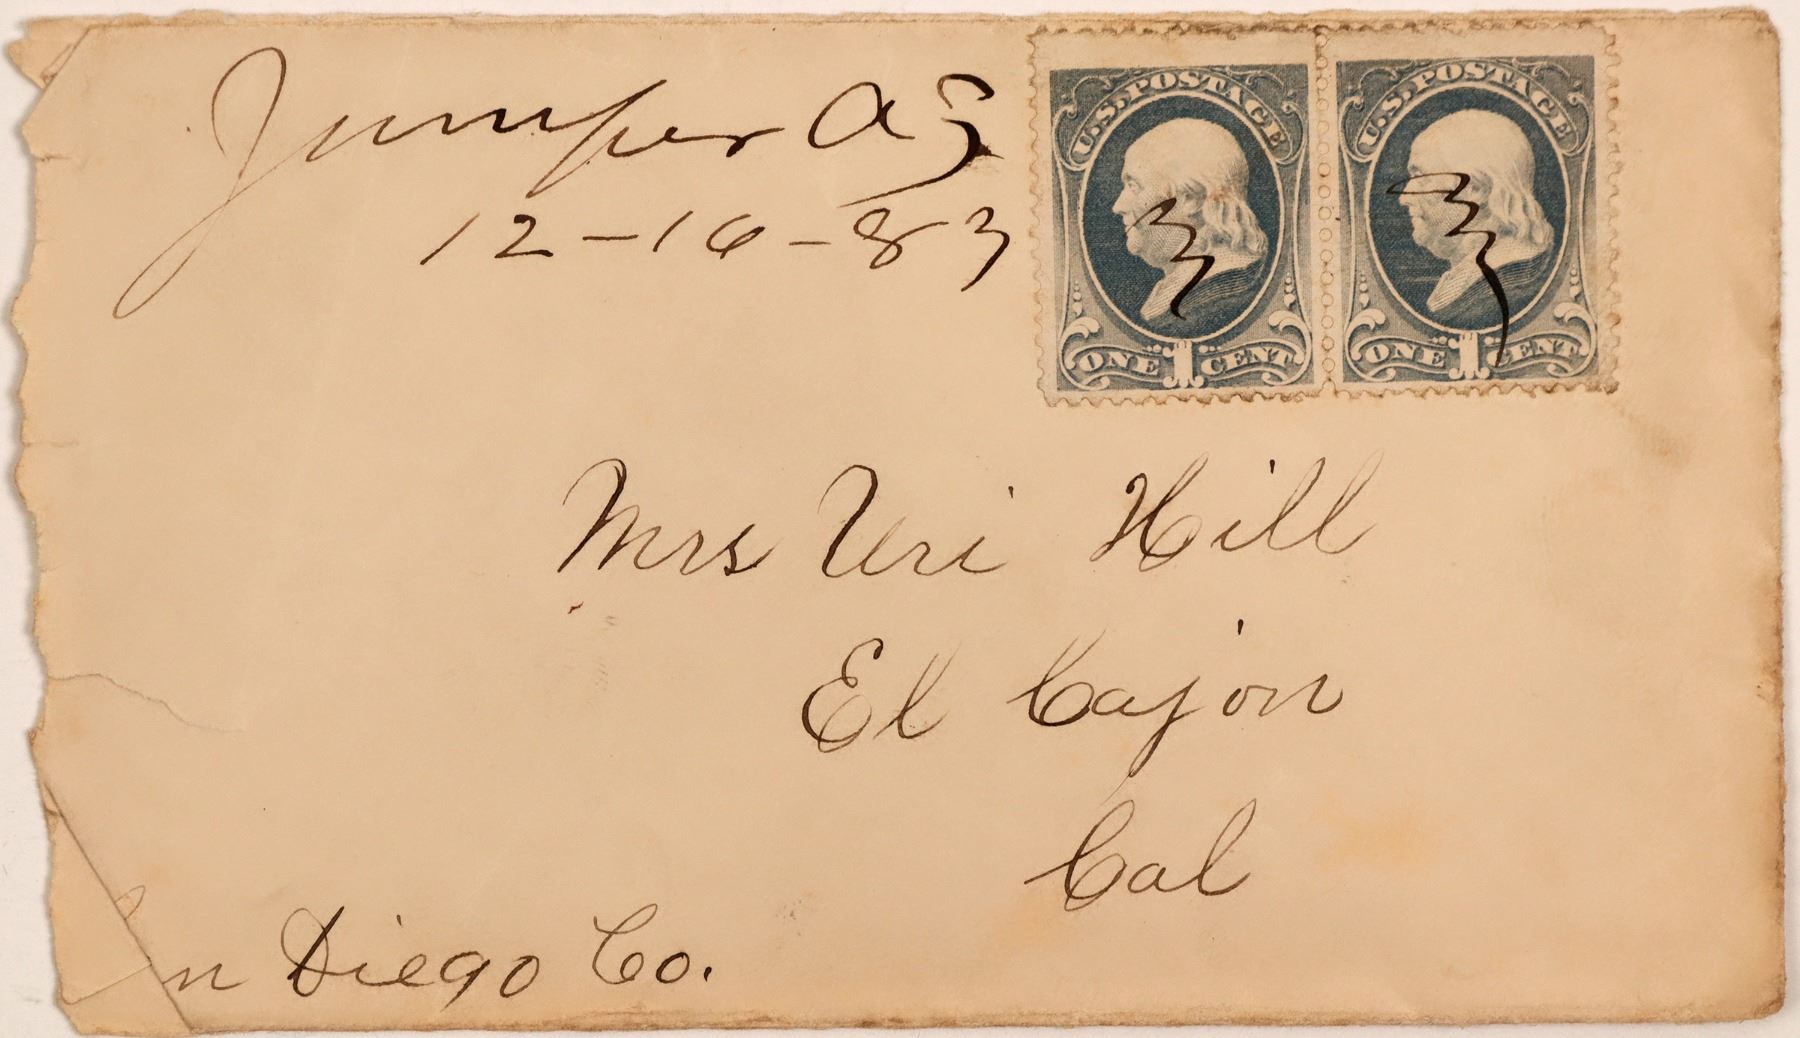 Juniper AZ
12-16-83
U.S. POSTAGE
ONE 1 CENT
U.S. POSTAGE
ONE 1 CENT
Mrs Uri Hill
El Cajon
Cal
n Diego Co.